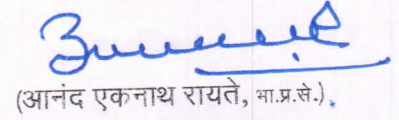 (आनंद एकनाथ रायते, भा.प्र.से.)